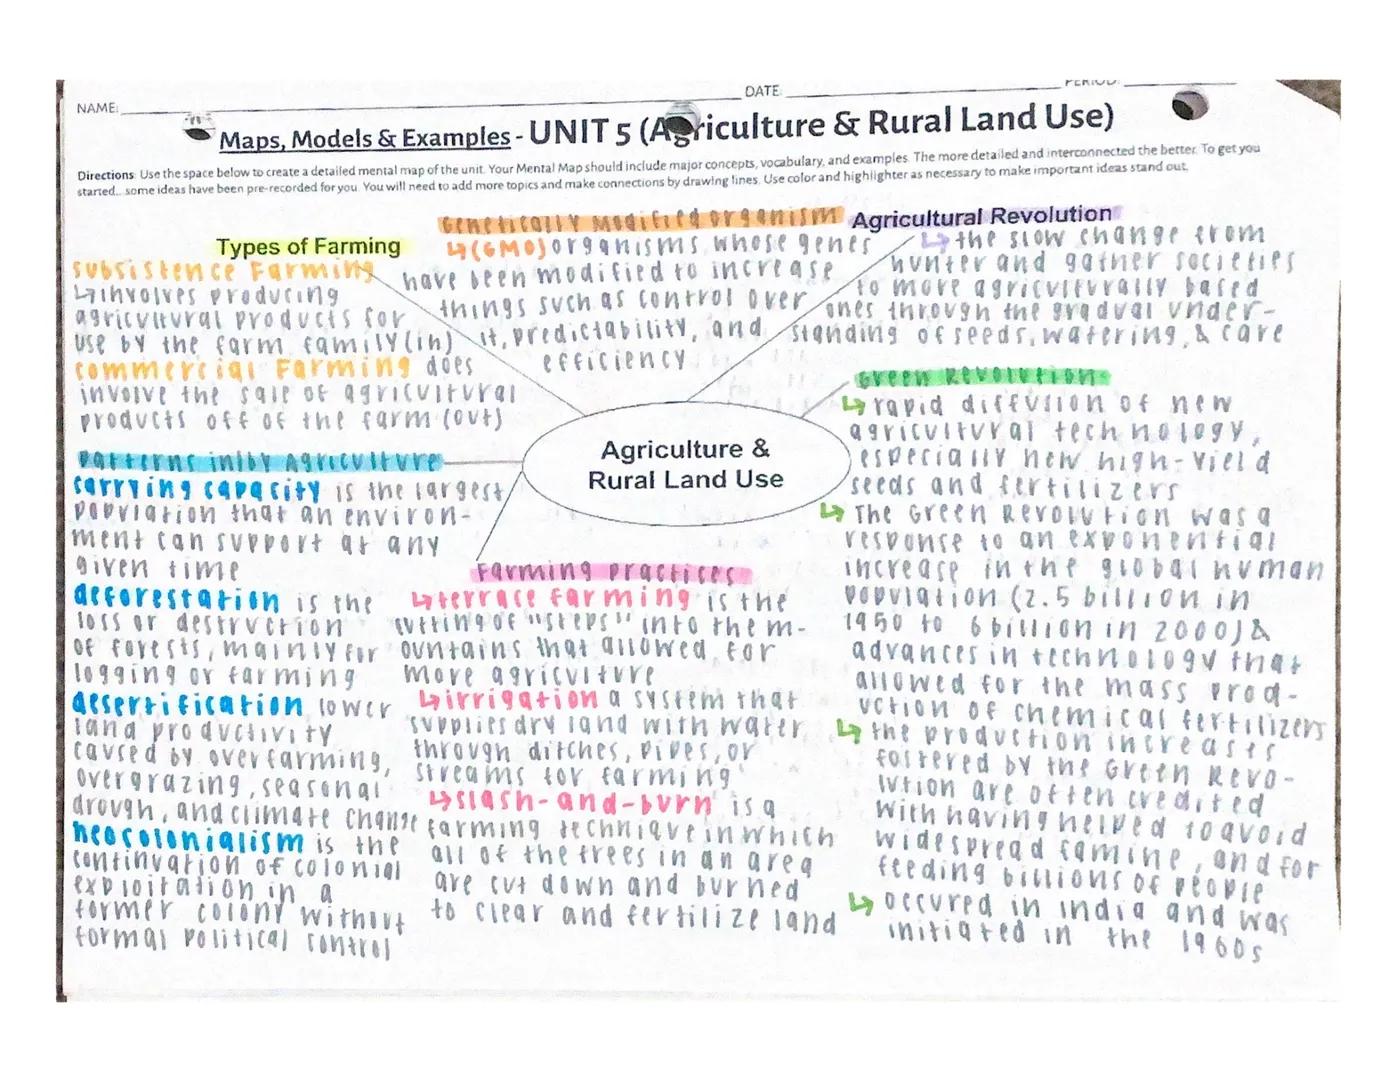 NAME:
DATE:
PERIOD:
Maps, Models & Examples - UNIT 5 (Agriculture & Rural Land Use)
Directions: Use the space below to create a detailed mental map of the unit. Your Mental Map should include major concepts, vocabulary, and examples. The more detailed and interconnected the better. To get you
started... some ideas have been pre-recorded for you. You will need to add more topics and make connections by drawing lines. Use color and highlighter as necessary to make important ideas stand out.
Types of Farming
subsistence Farming
↳involves producing
agricultural products for
use by the farm family (in)
commercial Farming does
involve the sale of agricultural
products off of the farm (out)
Genetically Modified organism
↳(GMO) organisms whose genes
have been modified to increase
things such as control over
it, predictability, and
efficiency
Agricultural Revolution
↳ the slow change from
hunter and gather societies
to more agriculturally based
ones through the gradual under-
standing of seeds, watering, & care
Agriculture &
Rural Land Use
Patterns in/by Agriculture
carrying capacity is the largest
population that an environ-
ment can support at any
given time
deforestation is the
loss or destruction
of forests, mainly for
logging or farming
desertification lower
land productivity
caused by overfarming,
overgrazing, seasonal
drough, and climate change
neocolonialism is the
continuation of colonial
exploitation in a
former colony without
formal political control
Farming Practices
↳terrace farming is the
cutting of "steps" into the m-
ountains that allowed for
more agriculture
↳irrigation a system that
supplies dry land with water
through ditches, pipes, or
streams for farming
↳slash-and-burn is a
farming technique in which
all of the trees in an area
are cut down and burned
to clear and fertilize land
Green Revolution
↳rapid diffusion of new
agricultural technology,
especially new high-yield
seeds and fertilizers
↳ The Green Revolution was a
response to an exponential
increase in the global human
population (2.5 billion in
1950 to 6 billion in 2000) &
advances in technology that
allowed for the mass prod-
uction of chemical fertilizers
↳ the production increases
fostered by the Green Revo-
lution are often credited
with having helped to avoid
widespread famine, and for
feeding billions of people
↳ occured in india and was
initiated in the 1960s